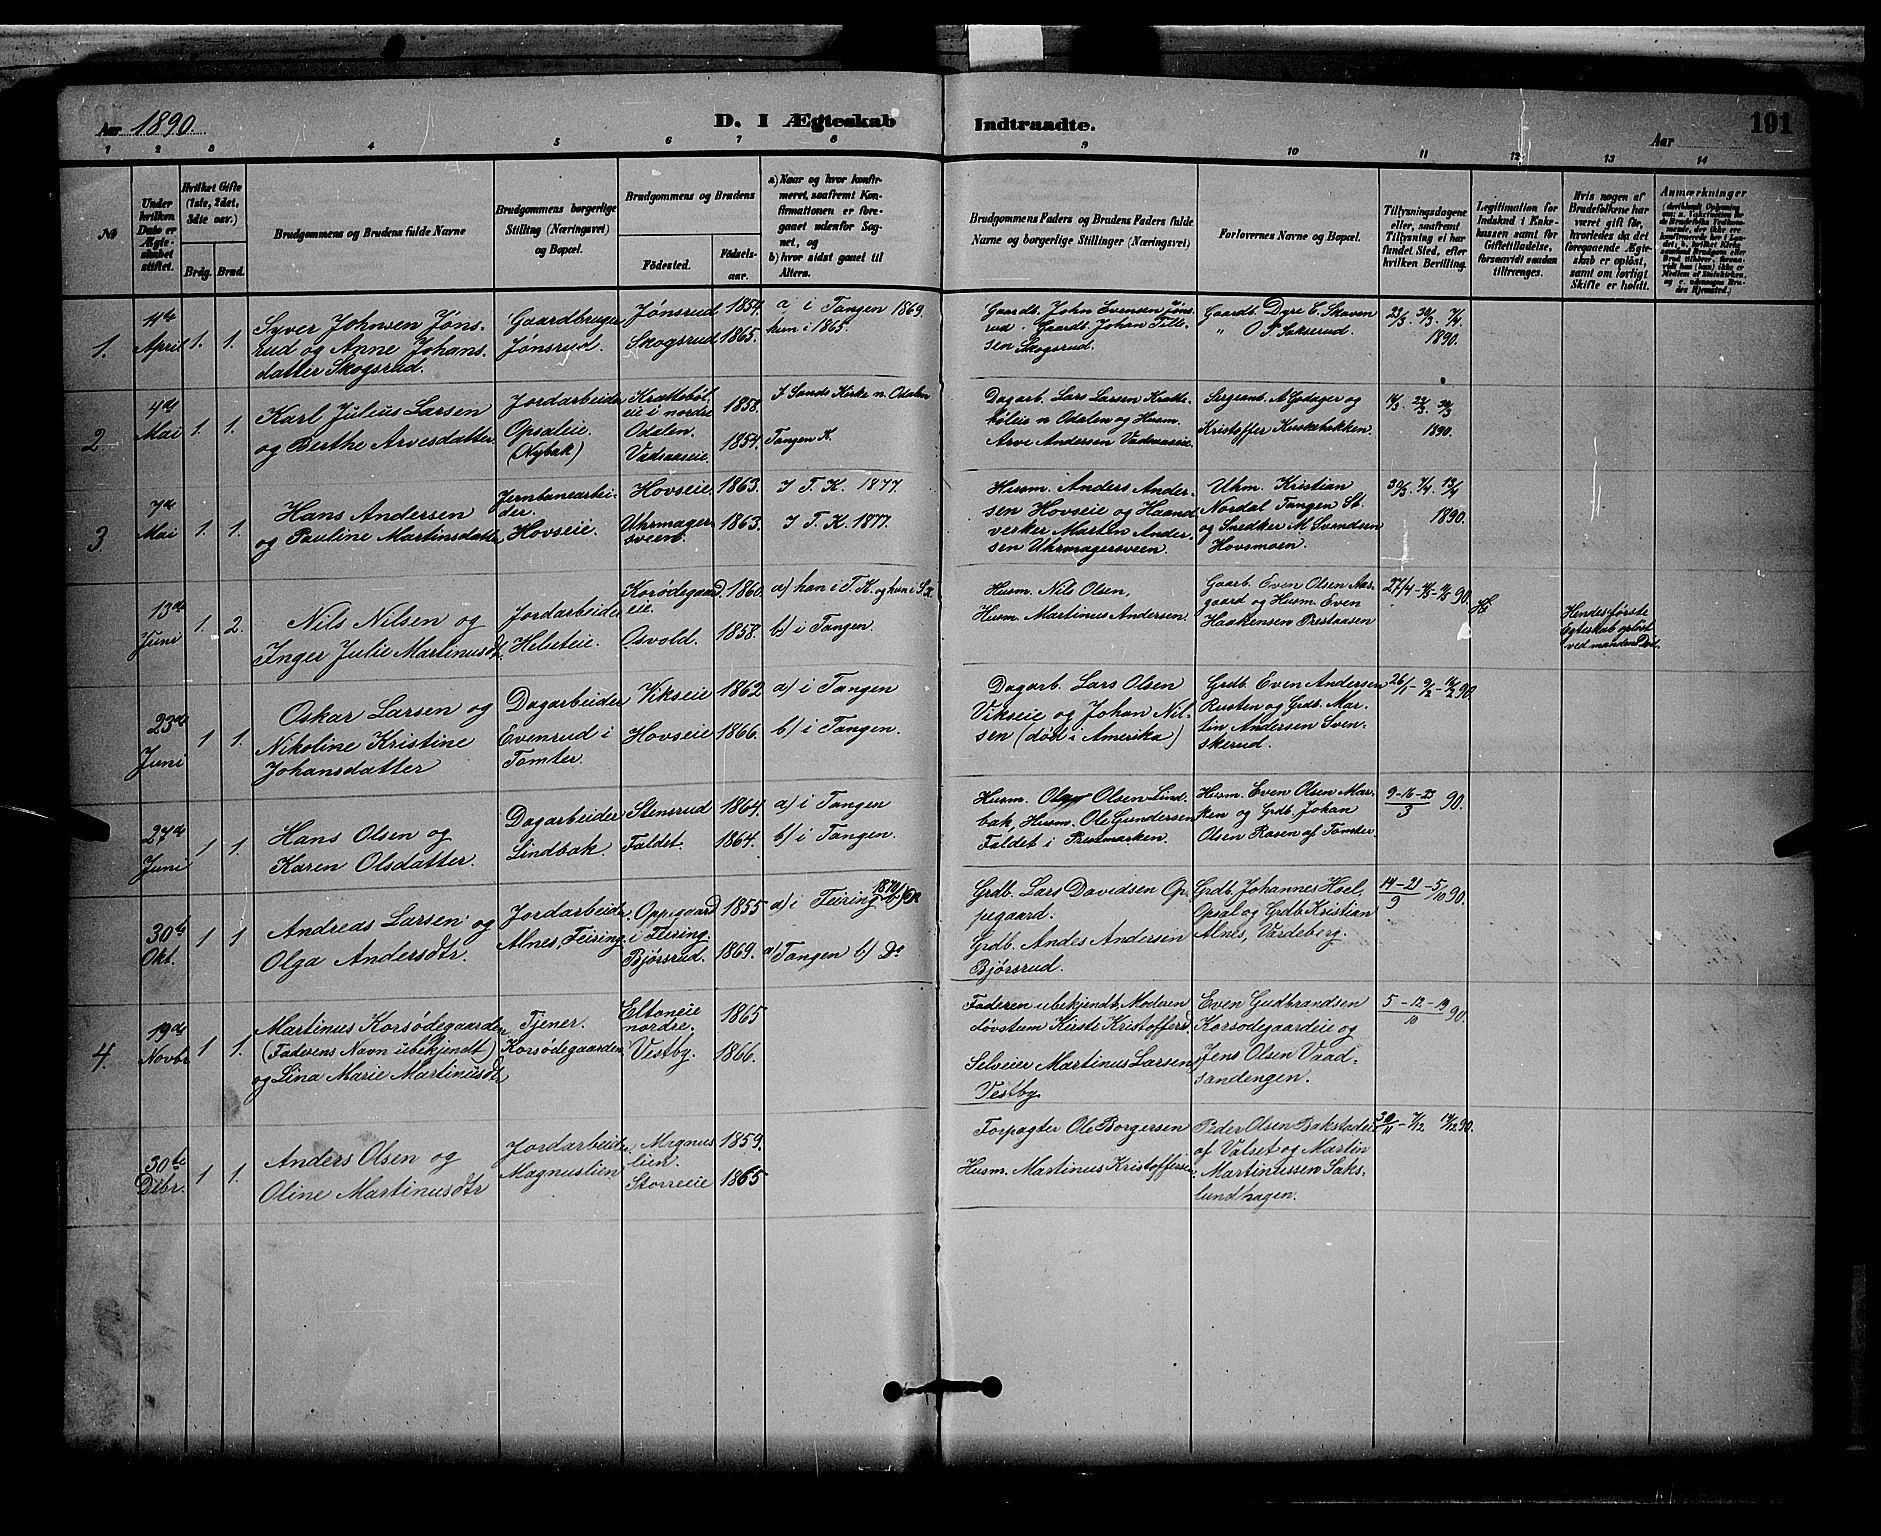 Aar 1890.
D. I Ægteskab Indtraadte.
Aar
191
1 2 3 4 5 6 7 8 9 10 11 12 13 14
№
Under hvilken Dato er Ægteskabet stiftet.
Hvilket Gifte (1ste, 2det, 3die osv.)
Brdg. Brud.
Brudgommens og Brudens fulde Navne
Brudgommens borgerlige Stilling (Næringsvei) og Bopæl.
Brudgommens og Brudens
Fødested.
Fødselsaar.
a) Naar og hvor konfirmeret, saafremt Konfirmationen er foregaaet udenfor Sognet, og
b) hvor sidst gaaet til Alters.
Brudgommens Faders og Brudens Faders fulde Navne og borgerlige Stillinger (Næringsvei)
Forlovernes Navne og Bopæl.
Tillysningsdagene eller, saafremt Tillysning ei har fundet Sted, efter hvilken Bevilling.
Legitimation for Indskud i Enkekassen samt for Giftetilladelse, forsaavidt saadan tiltrænges.
Hvis nogen af Brudefolkene har været gift før, hvorledes da det foregaaende Ægteskab er opløst, samt om lovligt Skifte er holdt.
Anmærkninger
1. 11te April 1. 1.
Syver Johnsen Jøns-
rud og Anne Johans-
datter Skogsrud.
Gaardbruger
Jønsrud.
Jønsrud 1854.
Skogsrud 1865.
a i Tangen 1869.
Gaardb. John Evensen Jøns
rud. Gaardb. Johan Till-
sen Skogsrud.
Gaardb. Dyre E. Skaven
" O. P. Sakserud.
23/3. 30/3. 7/4
1890.
2. 4de Mai 1. 1.
Karl Julius Larsen
og Berthe Arvesdatter
Jordarbeider
Opsaleie.
(Nybak)
Krattebøl-
eie i nordre
Odalen. 1858.
Vadsaaeie. 1854.
I Sands Kirke n. Odalen
Tangen K.
Dagarb. Lars Larsen Kratte-
bøleie n Odalen og Husm.
Arve Andersen Vadsaaeie.
Kristoffer Kuskebakken.
1890.
3. 7de Mai 1. 1.
Hans Andersen
og Pauline Martinsdatter
Jernbanearbei-
der.
Hovseie.
Hovseie 1863.
Uhrmager-
sveen. 1863.
I T. K. 1877.
I T. K. 1877.
Husm. Anders Ander-
sen Hovseie og Haand
verker Martin Ander-
sen Uhrmagersveen.
Uhm. Kristian
Nordal Tangen St.
og Snedker M. Svendsen
Hovsmoen.
30/3. 7/4. 13/4
1890.
13de Juni 1. 2.
Nils Nilsen og
Inger Julie Martinusdt.
Jordarbeider
Helseteie.
Korsødegaard
eie. 1860.
Osvold. 1858.
a) han i T. K. og hun i S. K.
b) i Tangen.
Husm. Nils Olsen,
Husm. Martinus Andersen.
Gaarb. Even Olsen Aas-
gaard og Husm. Even
Haakensen Prestaasen
Hendes første
Egteskab opløst
ved mandens Död.
23de Juni 1 1.
Oskar Larsen og
Nikoline Kristine
Johansdatter
Dagarbeider
Evenrud i
Tomter.
Vikseie 1862
Hovseie 1866.
a) i Tangen
b) i Tangen.
Dagarb. Lars Olsen
Vikseie og Johan Nil-
sen (død i Amerika)
Grdb. Even Andersen
Rusten og Grdb. Mar-
tin Andersen Sven-
skerud.
26/1 - 9/2 - 16/2 90
27de Juni 1 1.
Hans Olsen og
Karen Olsdatter.
Dagarbeider
Lindbak.
Stensrud 1864.
Faldet. 1864.
a) i Tangen
b) i Tangen.
Husm. Olsen Lind-
bak, Husm. Ole Gundersen
Faldet i Prestmarken.
Husm. Even Olsen Mar-
ken og Grdb. Johan
Olsen Rosen af Tomter
9-16-23/3 90.
30te Okt. 1 1
Andreas Larsen og
Olga Andersdtr.
Jordarbeider,
Alnes, Feiring.
Oppegaard
i Feiring. 1855
Bjørsrud. 1869.
a) i Feiring 1870
a) Tangen b) Do
Grdb. Lars Davidsen Op-
pegaard.
Grdb. Andes Andersen
Bjørsrud.
Grdb. Johannes Hoel,
Opsal og Grdb. Kristian
Alnes, Vardeberg.
14-21/9 - 5/10 90.
4. 19de Novbr 1 1.
Martinus Korsødegaarden
(Faderens Navn ubekjendt)
og Lina Marie Martinusdt.
Tjener.
Korsødegaarden
Eltoneie
nordre. 1865
Vestby. 1866.
Faderen ubekjendt, Moderen
døvstum Kirsti Kristoffersd
Selveier Martinus Larsen
Vestby
Even Gudbrandsen
Korsødegaardeie og
Jens Olsen Vaad-
sandengen.
5-12-19/10 90.
30te Dcbr. 1 1.
Anders Olsen og
Oline Martinusdtr
Jordarbeider
Magnuslien
Magnus
lien. 1859.
Storreeie 1865
Forpagter Ole Borgersen
Husm. Martinus Kristoffersen
Peder Olsen Bakstader
af Valset og Martin
Martinussen Saks-
lundhagen.
30/11 - 7/12 14/12 90.